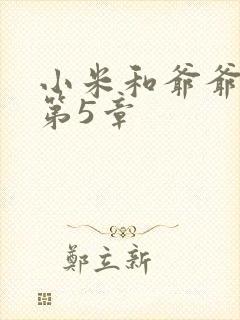 小米和爷爷
第5章
鄭立新